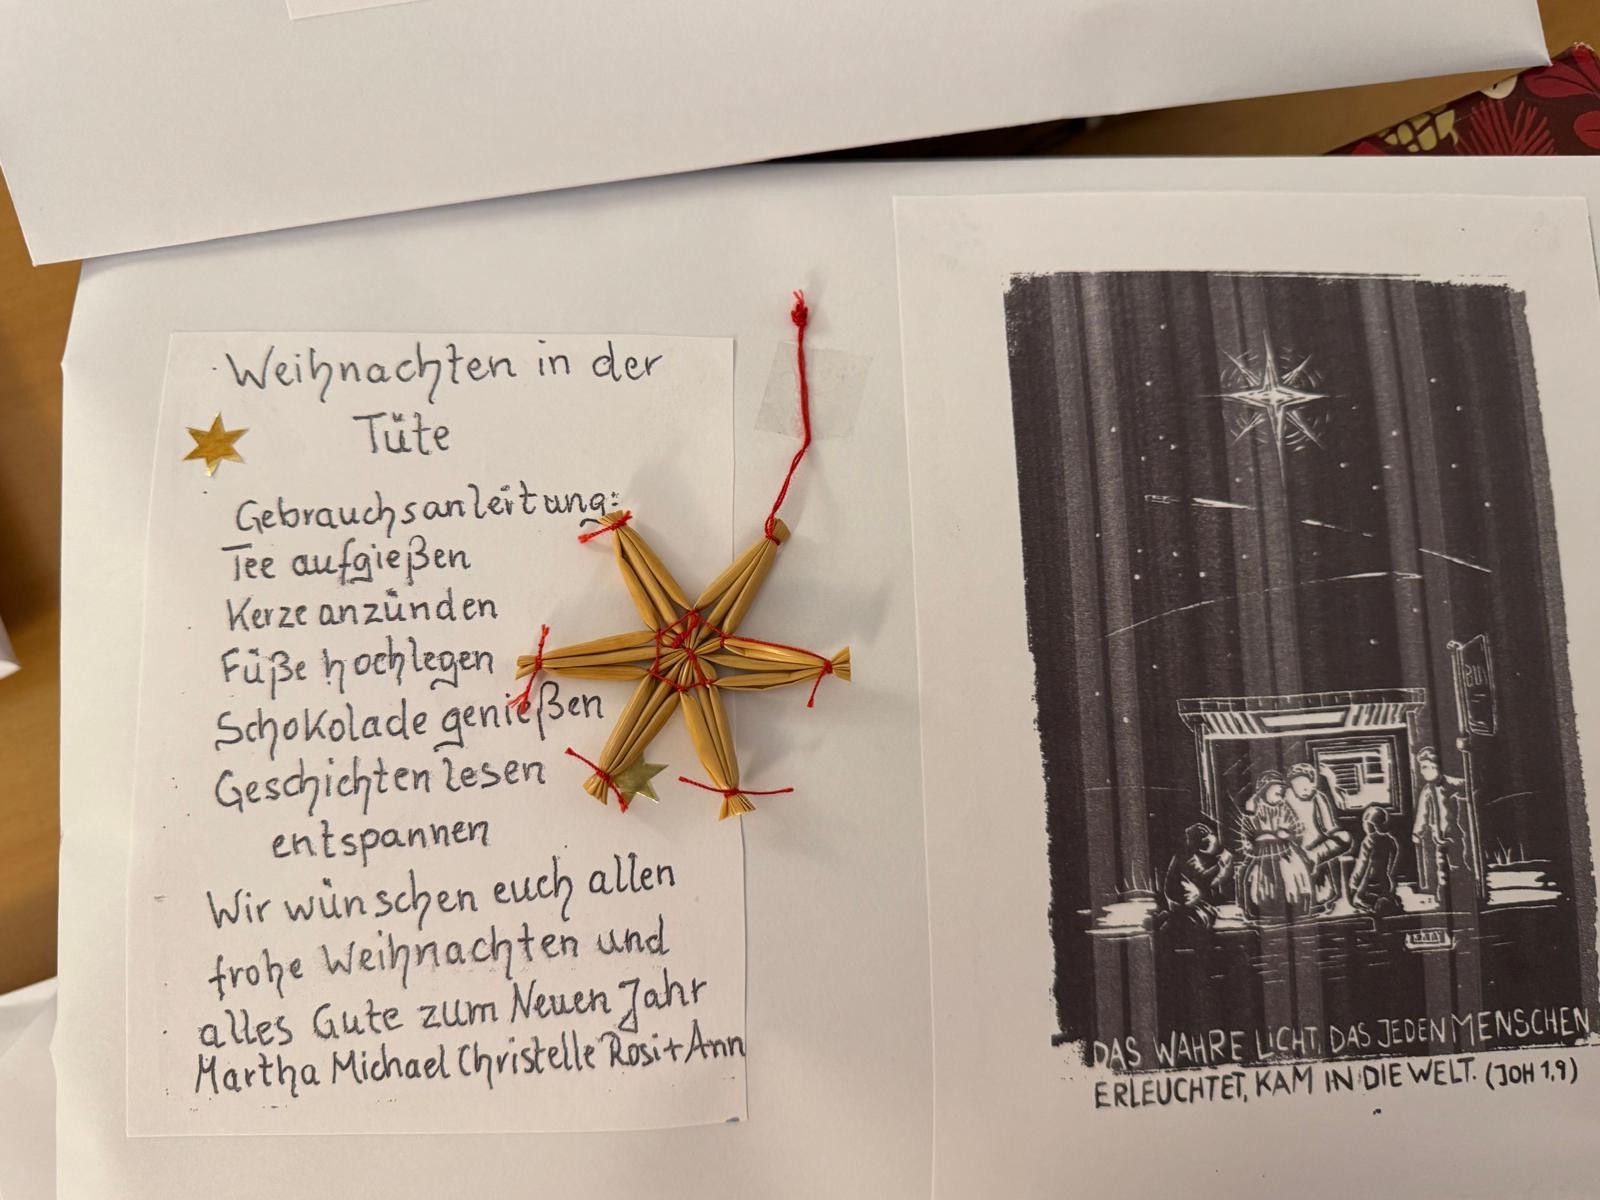 Weihnachten in der
Tüte
Gebrauchsanleitung:
Tee aufgießen
Kerze anzünden
Füße hochlegen
Schokolade genießen
Geschichten lesen
entspannen
Wir wünschen euch allen
frohe Weihnachten und
alles Gute zum Neuen Jahr
Martha Michael Christelle Rosi + Ann
BUS
DAS WAHRE LICHT, DAS JEDEN MENSCHEN
ERLEUCHTET, KAM IN DIE WELT. (JOH 1,9)